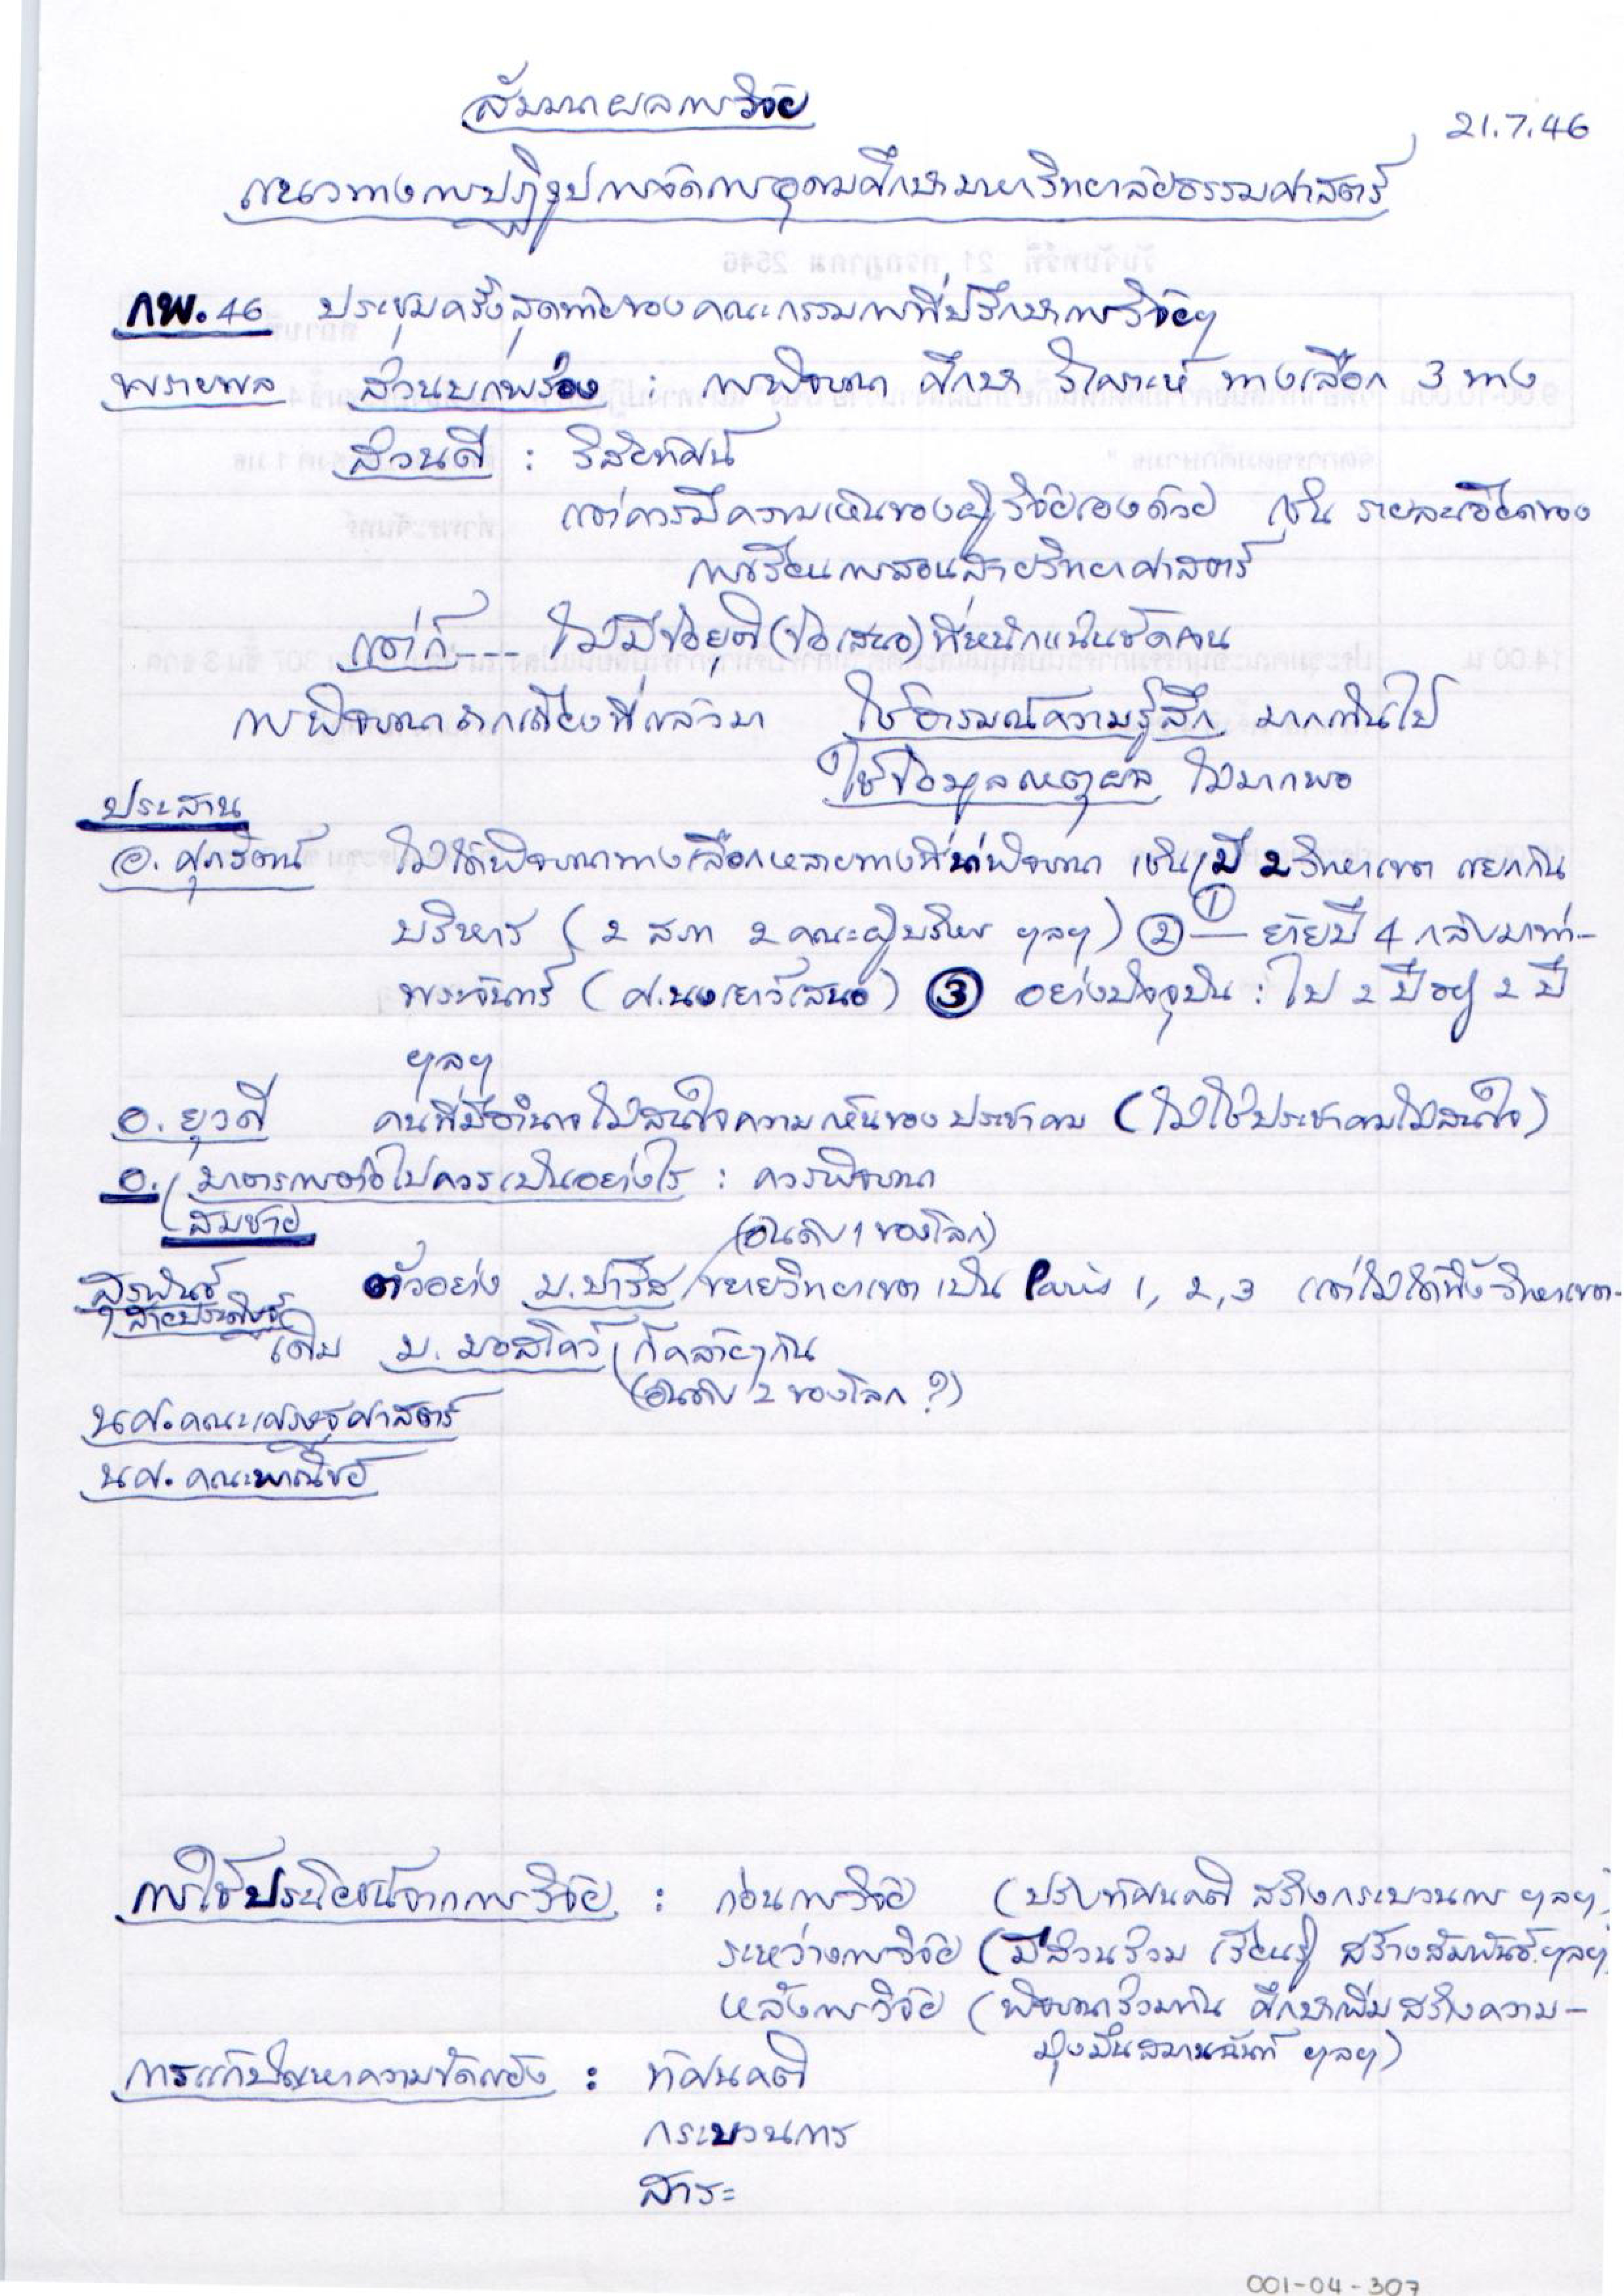 สัมมนาผลการวิจัย
21.7.46
แนวทางการปฏิรูปการจัดการอุดมศึกษามหาวิทยาลัยธรรมศาสตร์
กพ.46 ประชุมครั้งสุดท้ายของคณะกรรมการที่ปรึกษาการวิจัยฯ
พรายพล ส่วนบกพร่อง : การพิจารณา ศึกษา วิเคราะห์ ทางเลือก 3 ทาง
ส่วนดี : วิสัยทัศน์
แต่ควรมีความเห็นของผู้วิจัยเองด้วย เช่น รายละเอียดของ
การเรียนการสอนสายวิทยาศาสตร์
แต่ก็--- ไม่มีข้อยุติ (ข้อเสนอ) ที่หนักแน่นชัดเจน
การพิจารณาถกเถียงที่แล้วมา ใช้อารมณ์ความรู้สึก มากเกินไป
ใช้ข้อมูลเหตุผล ไม่มากพอ
ประสาน
อ. ศุภรัตน์ ไม่ได้พิจารณาทางเลือกหลายทางที่น่าพิจารณา เช่น มี 2 วิทยาเขต แยกกัน
บริหาร (2 สภา 2 คณะผู้บริหาร ฯลฯ) ② ① — ย้ายปี 4 กลับมาท่า–
พระจันทร์ (ศ.นงเยาว์เสนอ) ③ อย่างปัจจุบัน : ไป 2 ปี อยู่ 2 ปี
ฯลฯ
อ. ยุวดี คนที่มีอำนาจไม่สนใจความเห็นของประชาคม (ไม่ใช่ประชาคมไม่สนใจ)
อ. มาตรการต่อไปควรเป็นอย่างไร : ควรพิจารณา
สมชาย
(อันดับ 1 ของโลก)
ตัวอย่าง ม.ปารีส ขยายวิทยาเขต เป็น Paris 1, 2, 3 แต่ไม่ได้ทิ้งวิทยาเขต-
เดิม ม. มอสโคว์ ก็คล้ายๆกัน
(อันดับ 2 ของโลก ?)
นศ.คณะเศรษฐศาสตร์
นศ. คณะพาณิชย์
การใช้ประโยชน์จากการวิจัย : ก่อนการวิจัย (ปรับทัศนคติ สร้างกระบวนการ ฯลฯ)
ระหว่างการวิจัย (มีส่วนร่วม เรียนรู้ สร้างสัมพันธ์ ฯลฯ)
หลังการวิจัย (พิจารณาร่วมกัน ศึกษาเพิ่ม สร้างความ–
มุ่งมั่นสมานฉันท์ ฯลฯ)
การแก้ปัญหาความขัดแย้ง : ทัศนคติ
กระบวนการ
สาระ
001-04-307